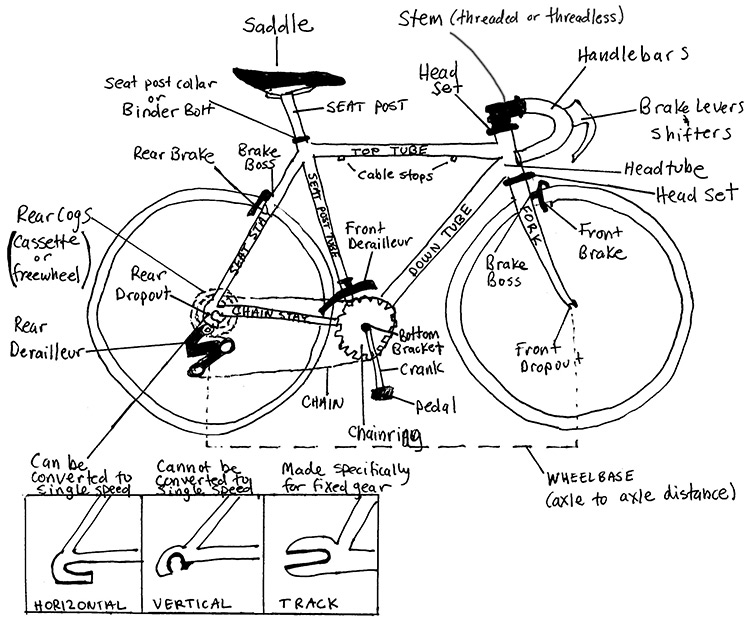 Saddle
Stem (threaded or threadless)
Handlebars
Head
Set
Seat post collar
or
Binder Bolt
SEAT POST
Brake Levers
&
Shifters
Rear Brake
Brake
Boss
TOP TUBE
Cable stops
Headtube
Head Set
Rear Cogs
(Cassette
or
freewheel)
SEAT STAY
SEAT POST TUBE
Front
Derailleur
DOWN TUBE
FORK
Brake
Boss
Front
Brake
Rear
Dropout
CHAIN STAY
Rear
Derailleur
Bottom
Bracket
Crank
Front
Dropout
CHAIN
Pedal
Chainring
WHEELBASE
(axle to axle distance)
Can be
converted to
single speed
Cannot be
converted to
single speed
Made specifically
for fixed gear
HORIZONTAL
VERTICAL
TRACK